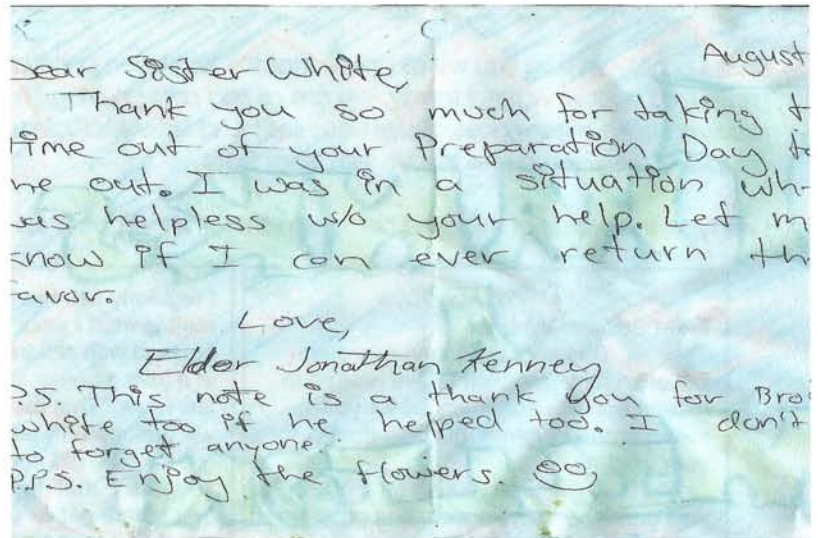 August
Dear Sister White,
Thank you so much for taking t
time out of your Preparation Day to
me out. I was in a situation wh
was helpless w/o your help. Let m
know if I can ever return th
favor.
Love,
Elder Jonathan Kenney
P.S. This note is a thank you for Bro
White too if he helped too. I don't
to forget anyone.
P.P.S. Enjoy the flowers.